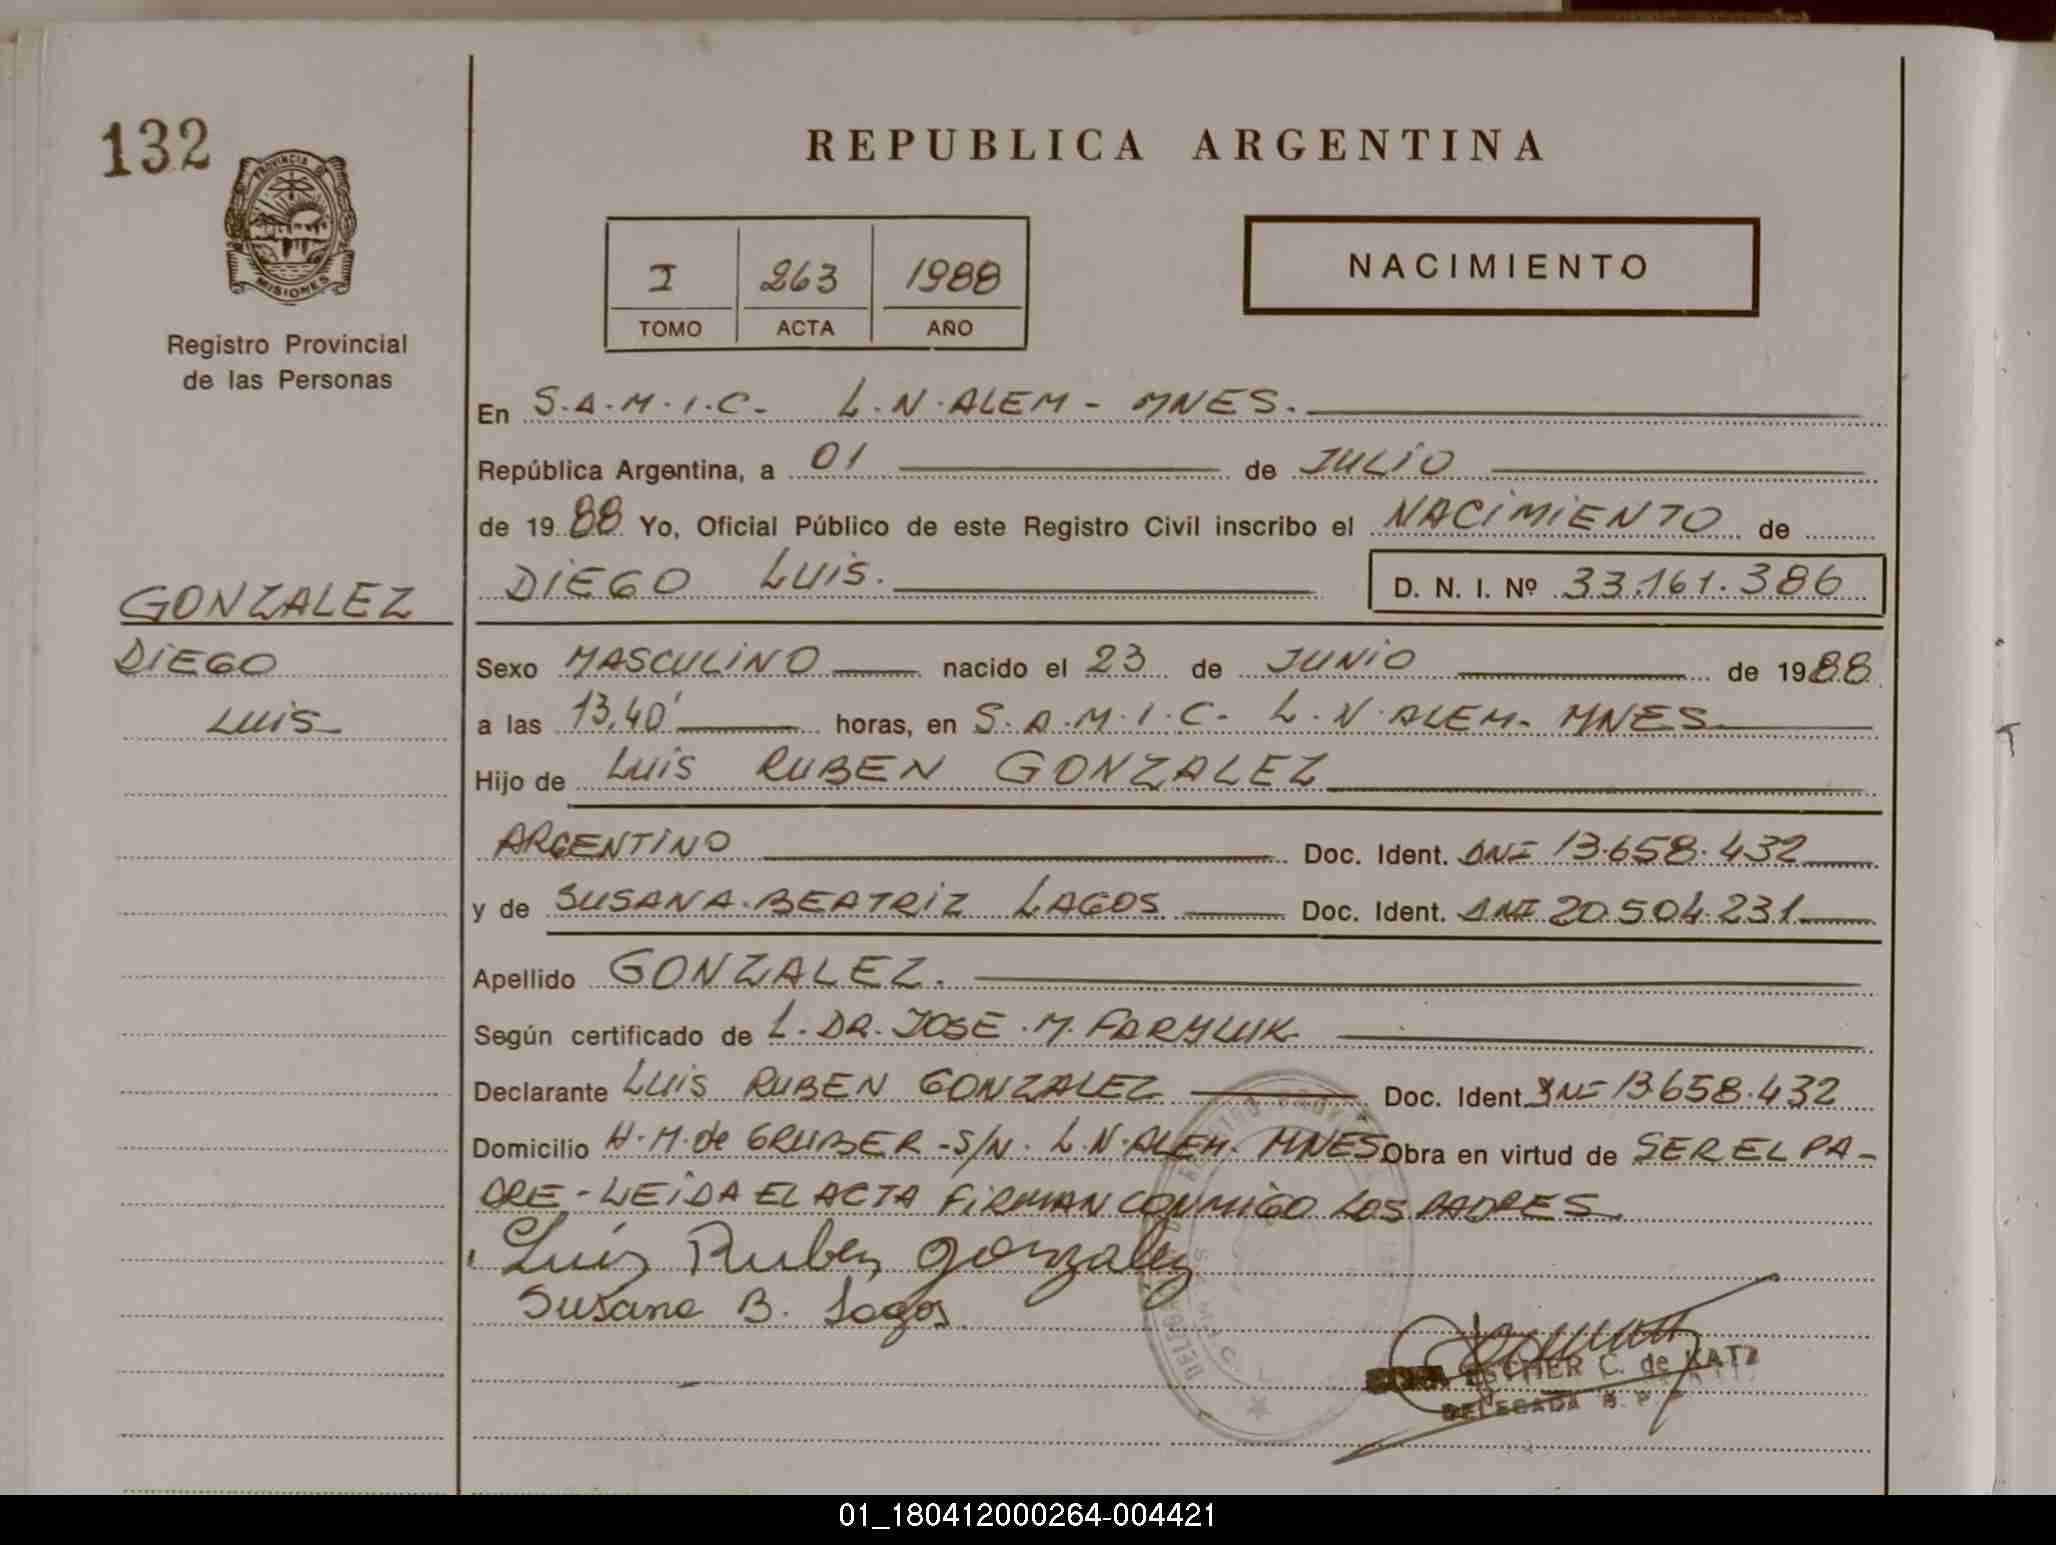 132
PROVINCIA DE
MISIONES
Registro Provincial
de las Personas
GONZALEZ
DIEGO
LUIS
REPUBLICA ARGENTINA
I 263 1988
TOMO ACTA AÑO
NACIMIENTO
En S.A.M.I.C. L.N.ALEM - MNES.
República Argentina, a 01 de JULIO
de 1988 Yo, Oficial Público de este Registro Civil inscribo el NACIMIENTO de
DIEGO LUIS. D. N. I. Nº 33.161.386
Sexo MASCULINO nacido el 23 de JUNIO de 1988
a las 13,40' horas, en S.A.M.I.C. L.N.ALEM- MNES
Hijo de LUIS RUBEN GONZALEZ
ARGENTINO Doc. Ident. DNI 13.658.432
y de SUSANA BEATRIZ LAGOS Doc. Ident. DNI 20.504.231
Apellido GONZALEZ.
Según certificado de L. DR. JOSE M. FARYLUK
Declarante LUIS RUBEN GONZALEZ Doc. Ident. DNI 13.658.432
Domicilio H.M. de GRUBER - S/N. L.N.ALEM. MNES Obra en virtud de SER EL PA-
DRE - LEIDA EL ACTA FIRMAN CONMIGO LOS PADRES
Luis Ruben Gonzalez
Susana B. Lagos
ESTHER C. de KATZ
DELEGADA R. P.
01_180412000264-004421